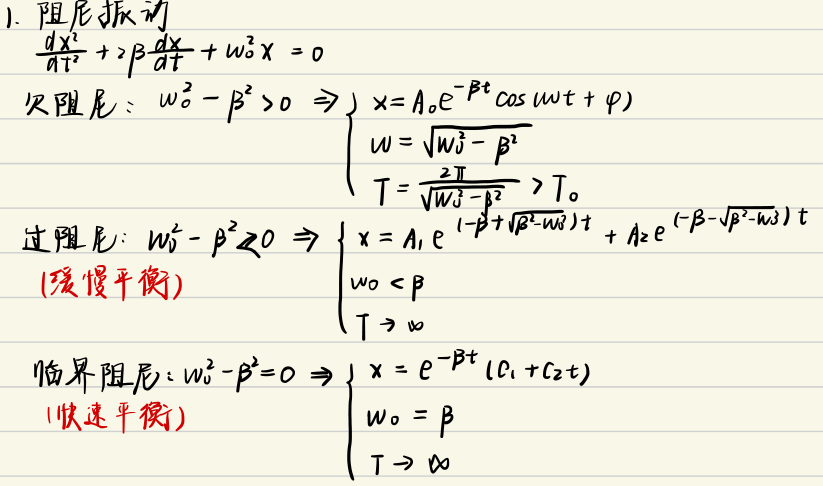 1. 阻尼振动
dx²/dt² + 2β dx/dt + ω₀² x = 0
欠阻尼: ω₀² - β² > 0 ⇒ { x = A₀e^(-βt) cos(ωt + φ)
ω = √(ω₀² - β²)
T = 2π/√(ω₀² - β²) > T₀
过阻尼: ω₀² - β² < 0 ⇒ { x = A₁ e^((-β+√(β²-ω₀²))t) + A₂ e^((-β-√(β²-ω₀²))t)
(缓慢平衡) ω₀ < β
T → ∞
临界阻尼: ω₀² - β² = 0 ⇒ { x = e^(-βt) (C₁ + C₂t)
(快速平衡) ω₀ = β
T → ∞